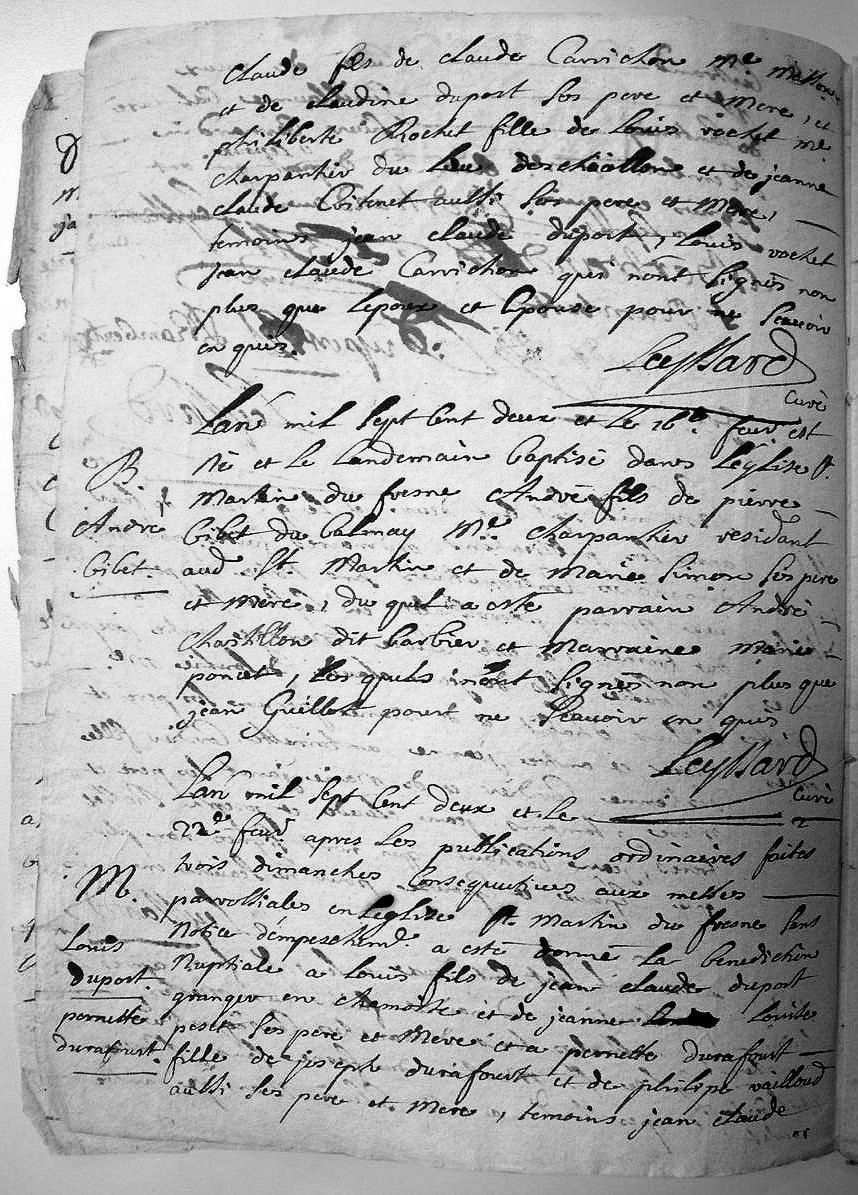 Claude fils de claude Carrichon me masson
et de claudine duport ses pere et mere, et
philiberte Rochet fille de Louis rochet me
charpantier du lieu deschaillon et de jeanne
claude Coitenet aussi ses pere et mere,
temoins jean claude duport, Louis rochet
jean claude Carrichon qui nont signés non
plus que lepoux et lepouse pour ne scavoir
en quis.
Leyssard
curé
Lan mil sept cent deux et le 16e fevr est
B.
né et le landemain baptisé dans Leglise st
martin du fresne André fils de pierre
André
Gibet
gibet du balmay me charpantier residant
aud st martin et de marie simon ses pere
et mere, du quel a esté parrain André
chastillon dit barbier et marraine marie
poncet, les quels nont signés non plus que
jean Guillot pour ne scavoir en quis
Leyssard
curé
Lan mil sept cent deux et le
22e fevr apres les publications ordinaires faites
M.
trois dimanches consequutives aux messes
parrossiales en Leglise st martin du fresne sans
Louis
duport
pernette
durafourt
notice dempeschemt a esté donné la benediction
nuptiale a Louis fils de jean claude duport
granger en chamoise et de jeanne Louise
peset ses pere et mere et a pernette durafourt
fille de joseph durafourt et de philipe vailloud
aussi ses pere et mere, temoins jean claude